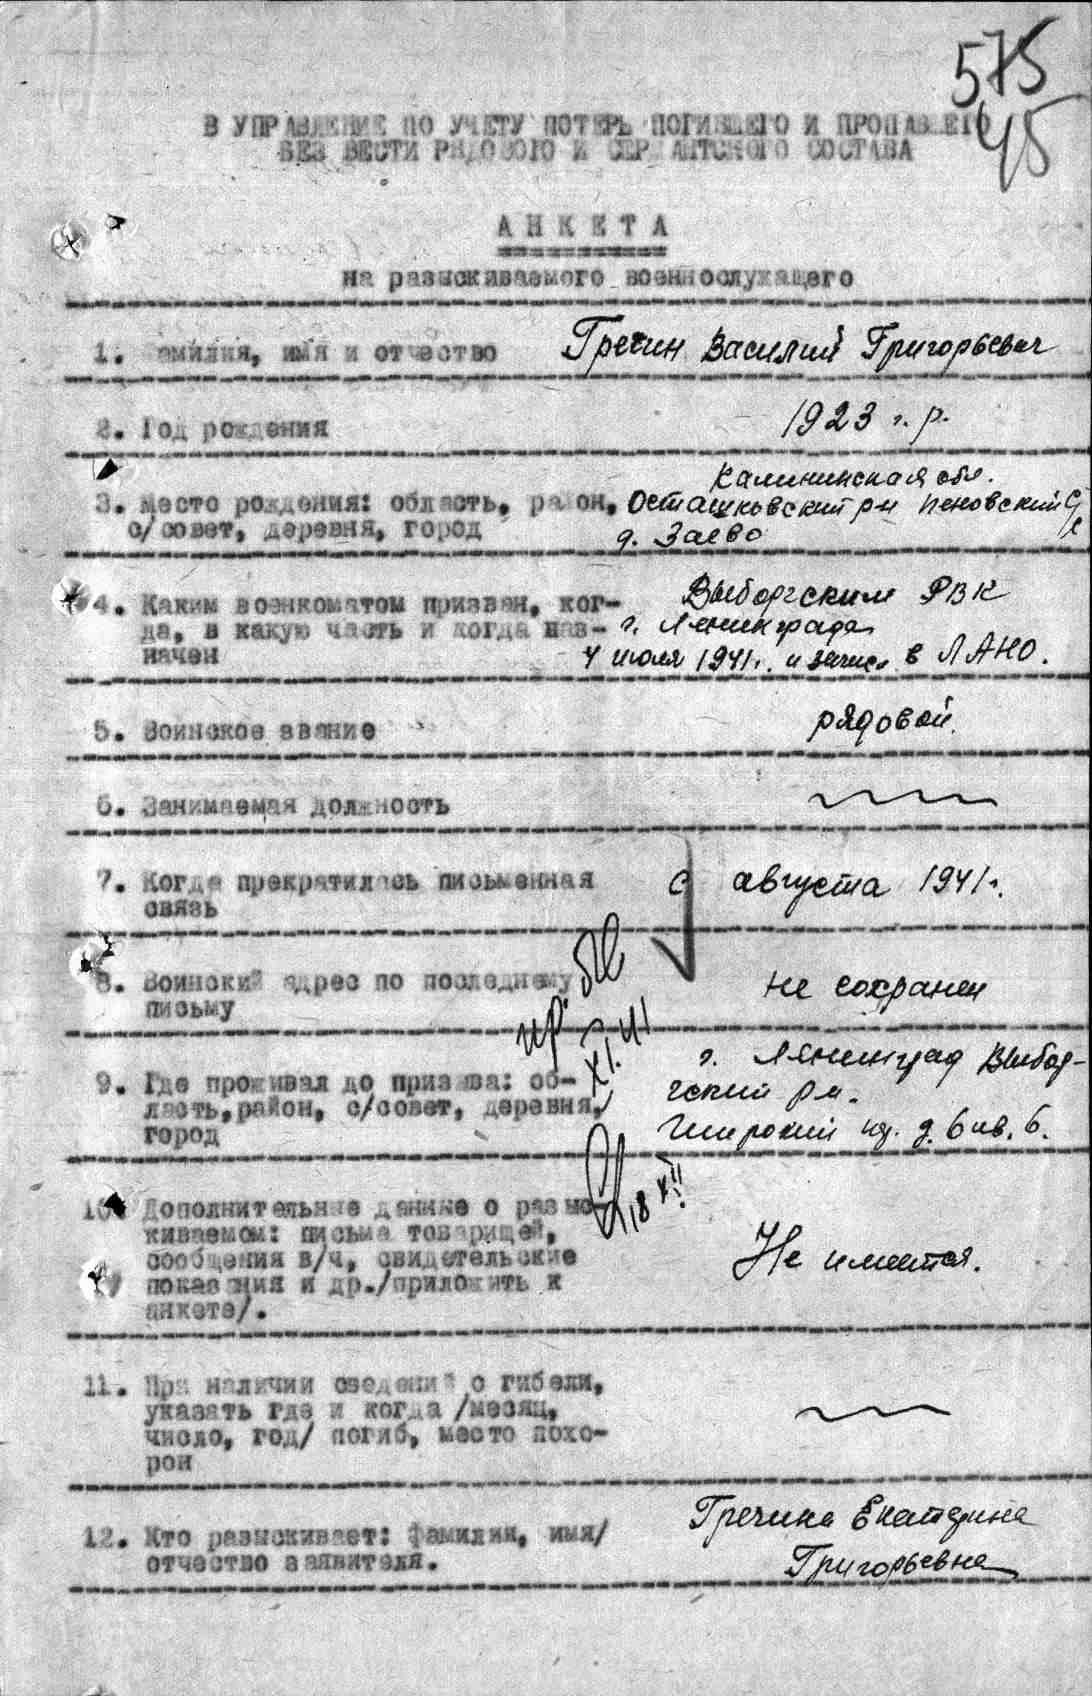 575
45
В УПРАВЛЕНИЕ ПО УЧЕТУ ПОТЕРЬ ПОГИБШЕГО И ПРОПАВШЕГО
БЕЗ ВЕСТИ РЯДОВОГО И СЕРЖАНТСКОГО СОСТАВА
АНКЕТА
на разыскиваемого военнослужащего
1. Фамилия, имя и отчество Гречин Василий Григорьевич
2. Год рождения 1923 г.р.
Калининская обл.
3. Место рождения: область, район, Осташковский р-н Пеновский с/с
с/совет, деревня, город д. Заево
4. Каким военкоматом призван, ког- Выборгским РВК
да, в какую часть и когда наз- г. Ленинграда
начен 4 июля 1941г. и зачис. в ЛАНО.
5. Воинское звание рядовой.
6. Занимаемая должность
7. Когда прекратилась письменная с августа 1941г.
связь
8. Воинский адрес по последнему не сохранен
письму
пр. бв
XI.41
9. Где проживал до призыва: об- г. Ленинград Выбор-
ласть, район, с/совет, деревня, гский р-н.
город Широкий пр. д. 6 кв. 6.
18 XII
10. Дополнительные данные о разыс-
киваемом: письма товарищей,
сообщения в/ч, свидетельские Не имеется.
показания и др./приложить к
анкете/.
11. При наличии сведений о гибели,
указать где и когда /месяц,
число, год/ погиб, место похо-
рон
12. Кто разыскивает: фамилия, имя/ Гречина Екатерина
отчество заявителя. Григорьевна